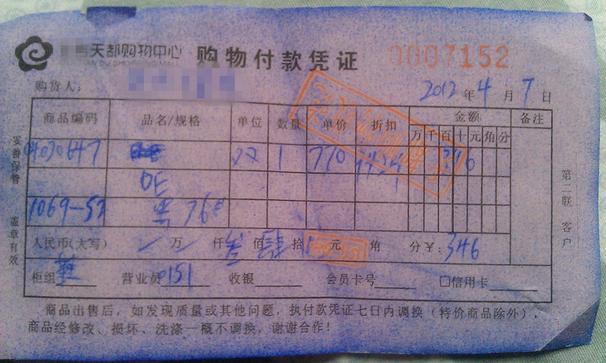 天都购物中心 购物付款凭证 0007152
购货人: 2012年4月7日
商品编码 品名/规格 单位 数量 单价 折扣 金额 备注
万千百十元角分
04030647 双 1 770 346
1069-52 黑 36#
人民币(大写) 万 仟叁佰肆拾 元 角 分¥: 346
柜组 营业员0151 收银 会员卡号 □信用卡
商品出售后,如发现质量或其他问题,执付款凭证七日内调换(特价商品除外),
商品经修改、损坏、洗涤一概不调换,谢谢合作!
妥善保管 盖章有效
第二联 客户